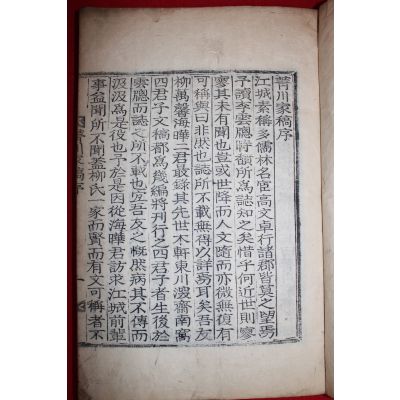 菁川家稿序
江城素稱多儒林名宦高文卓行諸郡皆莫之望焉
予讀李雲牕時馚所為誌知之矣惜乎何近世則寥
寥其未有聞也豈或世降而隨而亦微無復有
可稱與曰非然也誌所不載無得以詳焉耳矣吾友
柳萬馨海曄二君最錄其先世木軒東川漫齋南窩
四君子文稿都為幾編將刊行之四君子者生後於
雲牕而誌之所不載也宜吾友之慨然病其不傳而
汲汲為是役也予於是因從海曄君訪求江城前輩
事益聞所不聞蓋柳氏一家而賢而有文可稱者不